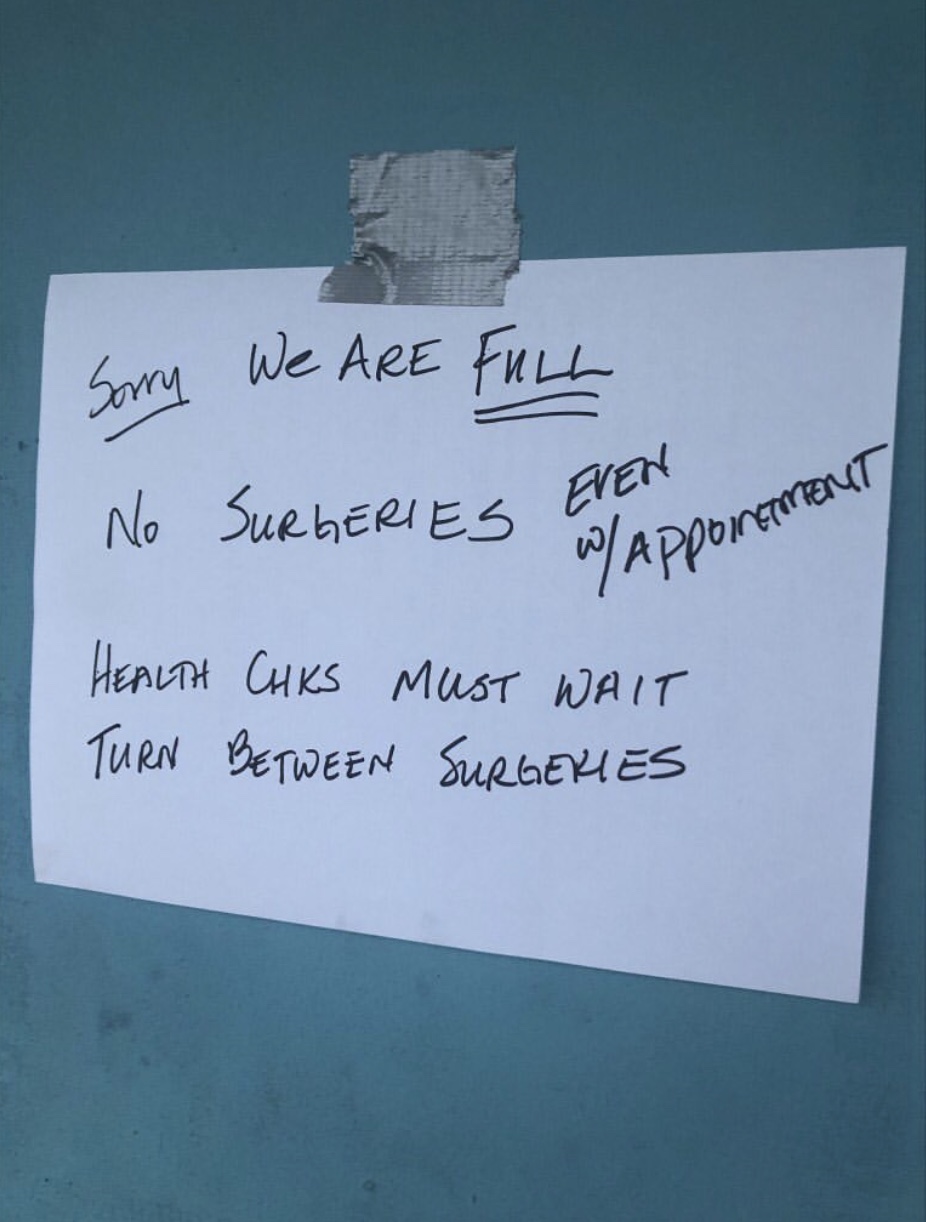 Sorry We ARE FULL
No SURGERIES EVEN
W/APPOINTMENT
HEALTH CHKS MUST WAIT
TURN BETWEEN SURGERIES